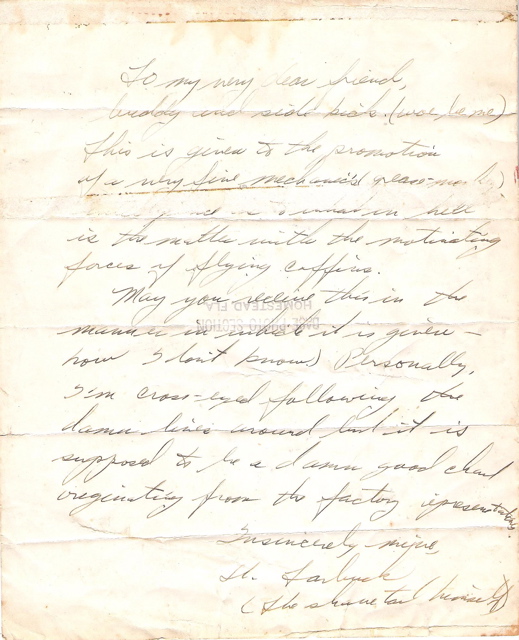 To my very dear friend,
buddy and side kick. (woe be me)
This is given to the promotion
of a very fine mechanic's
in hell
is the matter with the motivating
forces of flying coffins.
May you receive this in the
HOMESTEAD FLA
manner in which it is given –
BASE PHOTO SECTION
how I don't know) Personally,
I'm cross-eyed following the
damn lines around but it is
supposed to be a damn good chart
originating from the factory
Insincerely mine,
Lt.
(the himself)